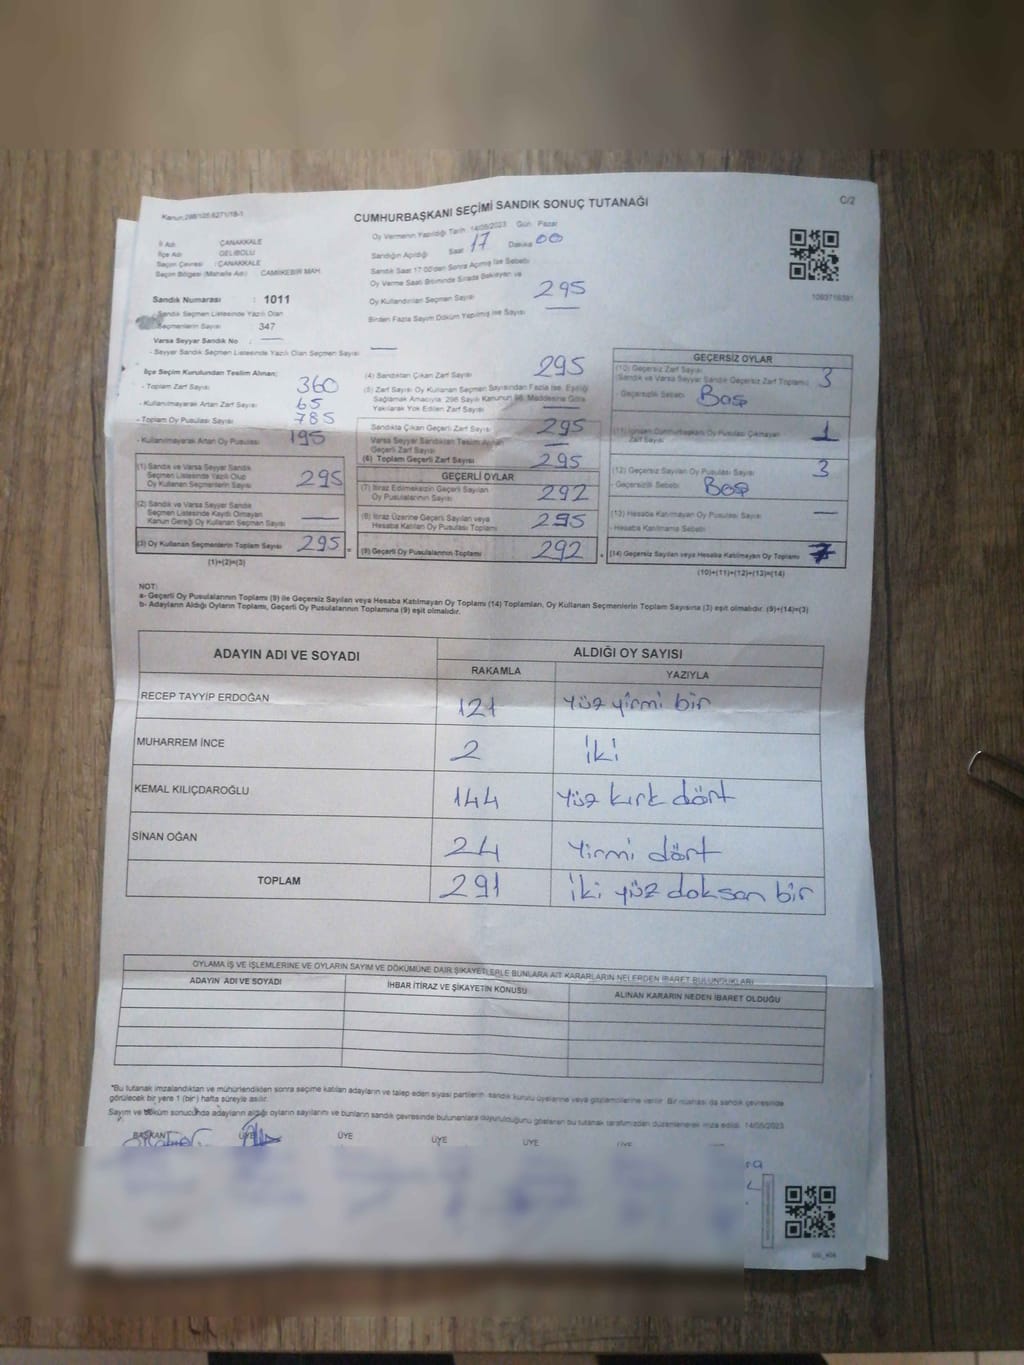 Kanun:298/105,6271/18-1
CUMHURBAŞKANI SEÇİMİ SANDIK SONUÇ TUTANAĞI
C/2
İl Adı : ÇANAKKALE
İlçe Adı : GELİBOLU
Seçim Çevresi : ÇANAKKALE
Seçim Bölgesi (Mahalle Adı) : CAMİİKEBİR MAH.
Sandık Numarası : 1011
Sandık Seçmen Listesinde Yazılı Olan
Seçmenlerin Sayısı 347
Varsa Seyyar Sandık No : —
- Seyyar Sandık Seçmen Listesinde Yazılı Olan Seçmen Sayısı —
Oy Vermenin Yapıldığı Tarih 14/05/2023 Gün Pazar
Sandığın Açıldığı Saat 17 Dakika 00
Sandık Saat 17:00'den Sonra Açılmış İse Sebebi
Oy Verme Saati Bitiminde Sırada Bekleyen ve
Oy Kullandırılan Seçmen Sayısı 295
Birden Fazla Sayım Döküm Yapılmış İse Sayısı —
İlçe Seçim Kurulundan Teslim Alınan;
- Toplam Zarf Sayısı 360
- Kullanılmayarak Artan Zarf Sayısı 65
- Toplam Oy Pusulası Sayısı 785
- Kullanılmayarak Artan Oy Pusulası 195
(1) Sandık ve Varsa Seyyar Sandık
Seçmen Listesinde Yazılı Olup
Oy Kullanan Seçmenlerin Sayısı 295
(2) Sandık ve Varsa Seyyar Sandık
Seçmen Listesinde Kayıtlı Olmayan
Kanun Gereği Oy Kullanan Seçmen Sayısı —
(3) Oy Kullanan Seçmenlerin Toplam Sayısı 295 =
(1)+(2)=(3)
(4) Sandıktan Çıkan Zarf Sayısı 295
(5) Zarf Sayısı Oy Kullanan Seçmen Sayısından Fazla İse, Eşitliği
Sağlamak Amacıyla, 298 Sayılı Kanunun 98. Maddesine Göre
Yakılarak Yok Edilen Zarf Sayısı —
Sandıkta Çıkan Geçerli Zarf Sayısı 295
Varsa Seyyar Sandıktan Teslim Alınan
Geçerli Zarf Sayısı —
(6) Toplam Geçerli Zarf Sayısı 295
GEÇERLİ OYLAR
(7) İtiraz Edilmeksizin Geçerli Sayılan
Oy Pusulalarının Sayısı 292
(8) İtiraz Üzerine Geçerli Sayılan veya
Hesaba Katılan Oy Pusulası Toplamı 295
(9) Geçerli Oy Pusulalarının Toplamı 292 +
GEÇERSİZ OYLAR
(10) Geçersiz Zarf Sayısı
(Sandık ve Varsa Seyyar Sandık Geçersiz Zarf Toplamı) 3
- Geçersizlik Sebebi Boş
(11) İçinden Cumhurbaşkanı Oy Pusulası Çıkmayan
Zarf Sayısı 1
(12) Geçersiz Sayılan Oy Pusulası Sayısı 3
- Geçersizlik Sebebi Boş
(13) Hesaba Katılmayan Oy Pusulası Sayısı —
- Hesaba Katılmama Sebebi
(14) Geçersiz Sayılan veya Hesaba Katılmayan Oy Toplamı 7
(10)+(11)+(12)+(13)=(14)
NOT:
a- Geçerli Oy Pusulalarının Toplamı (9) ile Geçersiz Sayılan veya Hesaba Katılmayan Oy Toplamı (14) Toplamları, Oy Kullanan Seçmenlerin Toplam Sayısına (3) eşit olmalıdır. (9)+(14)=(3)
b- Adayların Aldığı Oyların Toplamı, Geçerli Oy Pusulalarının Toplamına (9) eşit olmalıdır.
ADAYIN ADI VE SOYADI ALDIĞI OY SAYISI
RAKAMLA YAZIYLA
RECEP TAYYİP ERDOĞAN 121 yüz yirmi bir
MUHARREM İNCE 2 iki
KEMAL KILIÇDAROĞLU 144 yüz kırk dört
SİNAN OĞAN 24 yirmi dört
TOPLAM 291 iki yüz doksan bir
OYLAMA İŞ VE İŞLEMLERİNE VE OYLARIN SAYIM VE DÖKÜMÜNE DAİR ŞİKAYETLERLE BUNLARA AİT KARARLARIN NELERDEN İBARET BULUNDUKLARI
ADAYIN ADI VE SOYADI İHBAR İTİRAZ VE ŞİKAYETİN KONUSU ALINAN KARARIN NEDEN İBARET OLDUĞU
*Bu tutanak imzalandıktan ve mühürlendikten sonra seçime katılan adayların ve talep eden siyasi partilerin sandık kurulu üyelerine veya gözlemcilerine verilir. Bir nüshası da sandık çevresinde
görülecek bir yere 1 (bir) hafta süreyle asılır.
Sayım ve döküm sonucunda adayların aldığı oyların sayılarını ve bunların sandık çevresinde bulunanlara duyurulduğunu gösteren bu tutanak tarafımızdan düzenlenerek imza edildi. 14/05/2023
BAŞKAN ÜYE ÜYE ÜYE ÜYE ÜYE